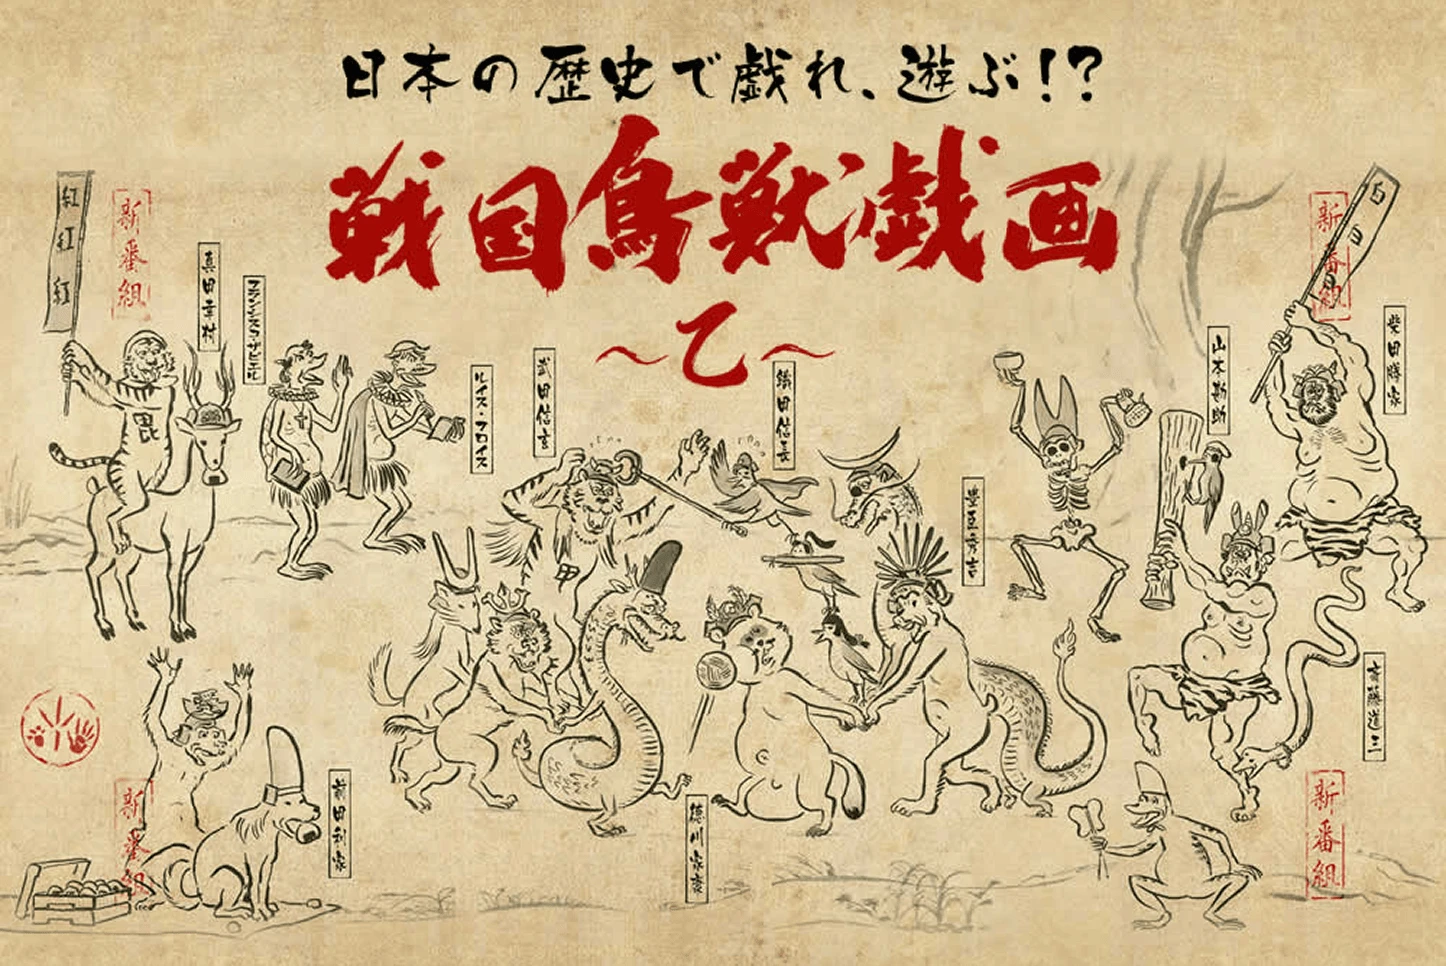 日本の歴史で戯れ、遊ぶ！？
戦国鳥獣戯画
～乙～
紅紅紅
新番組
真田幸村
フランシスコ・ザビエル
ルイス・フロイス
武田信玄
織田信長
豊臣秀吉
山本勘助
新番組
柴田勝家
毘
甲
斎藤道三
新番組
前田利家
徳川家康
新番組